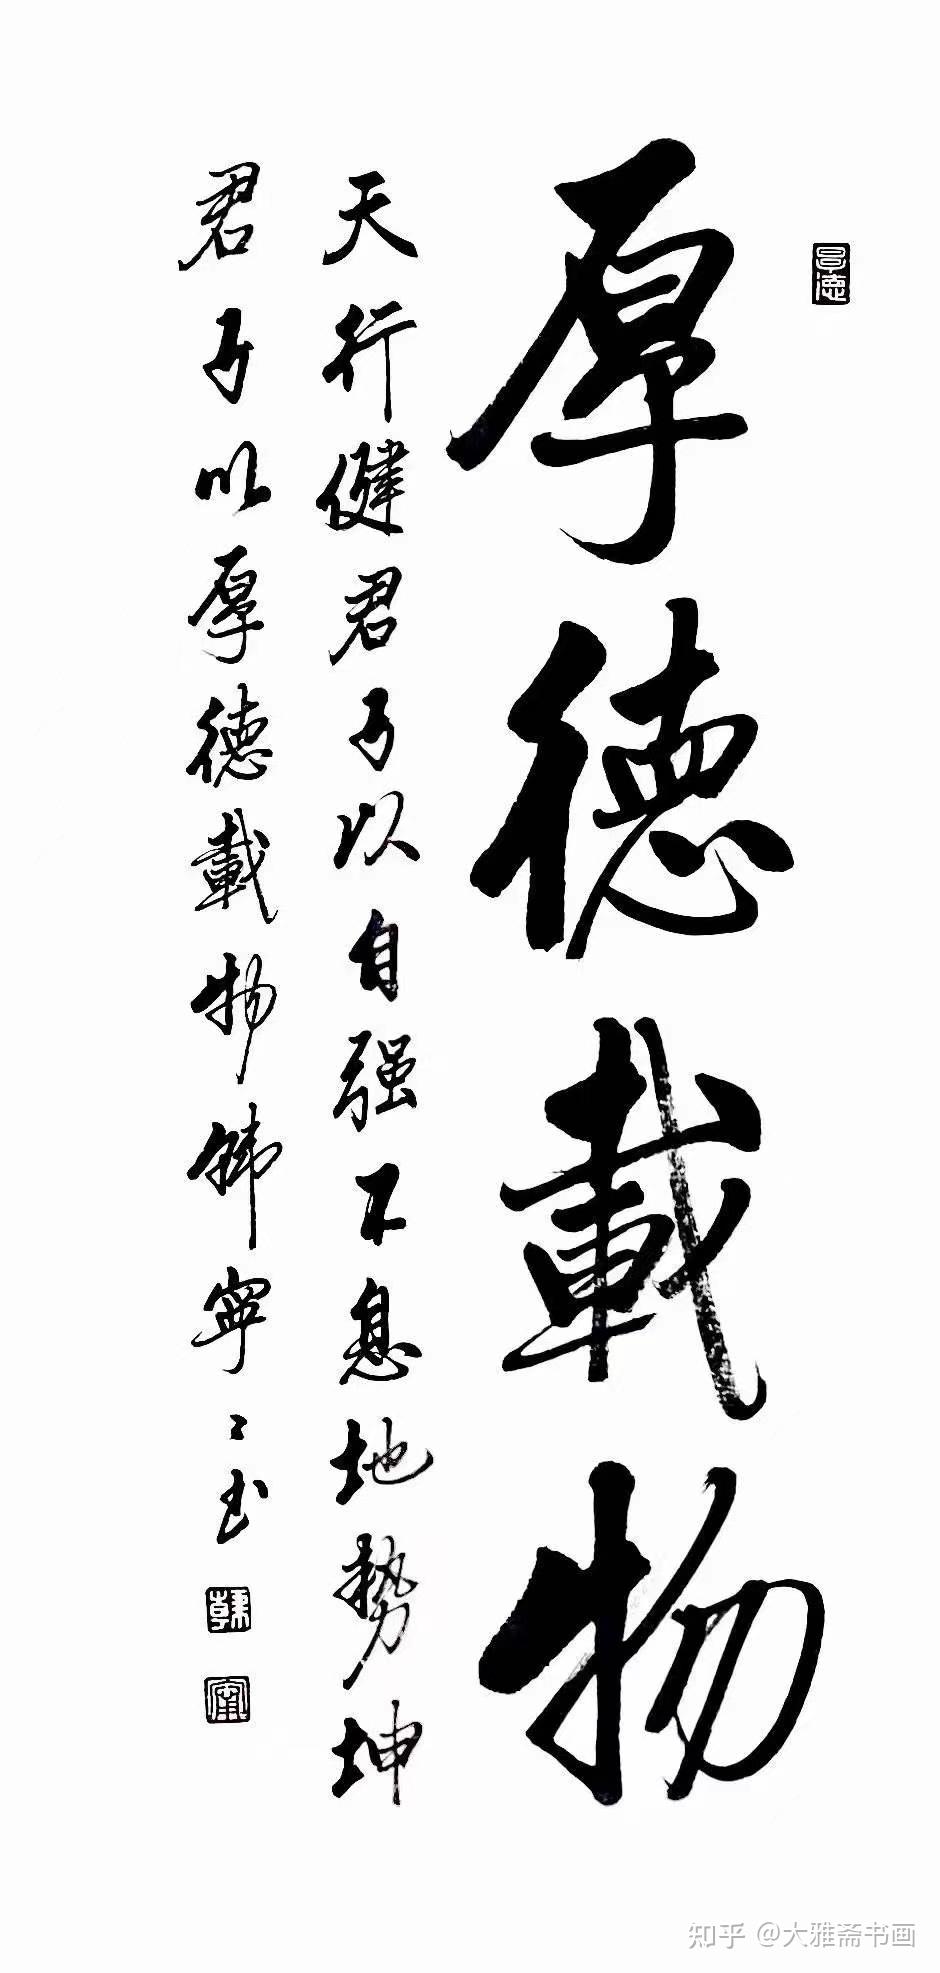 厚德載物
天行健君子以自强不息地势坤
君子以厚德載物韩宁宁书
知乎 @大雅斋书画